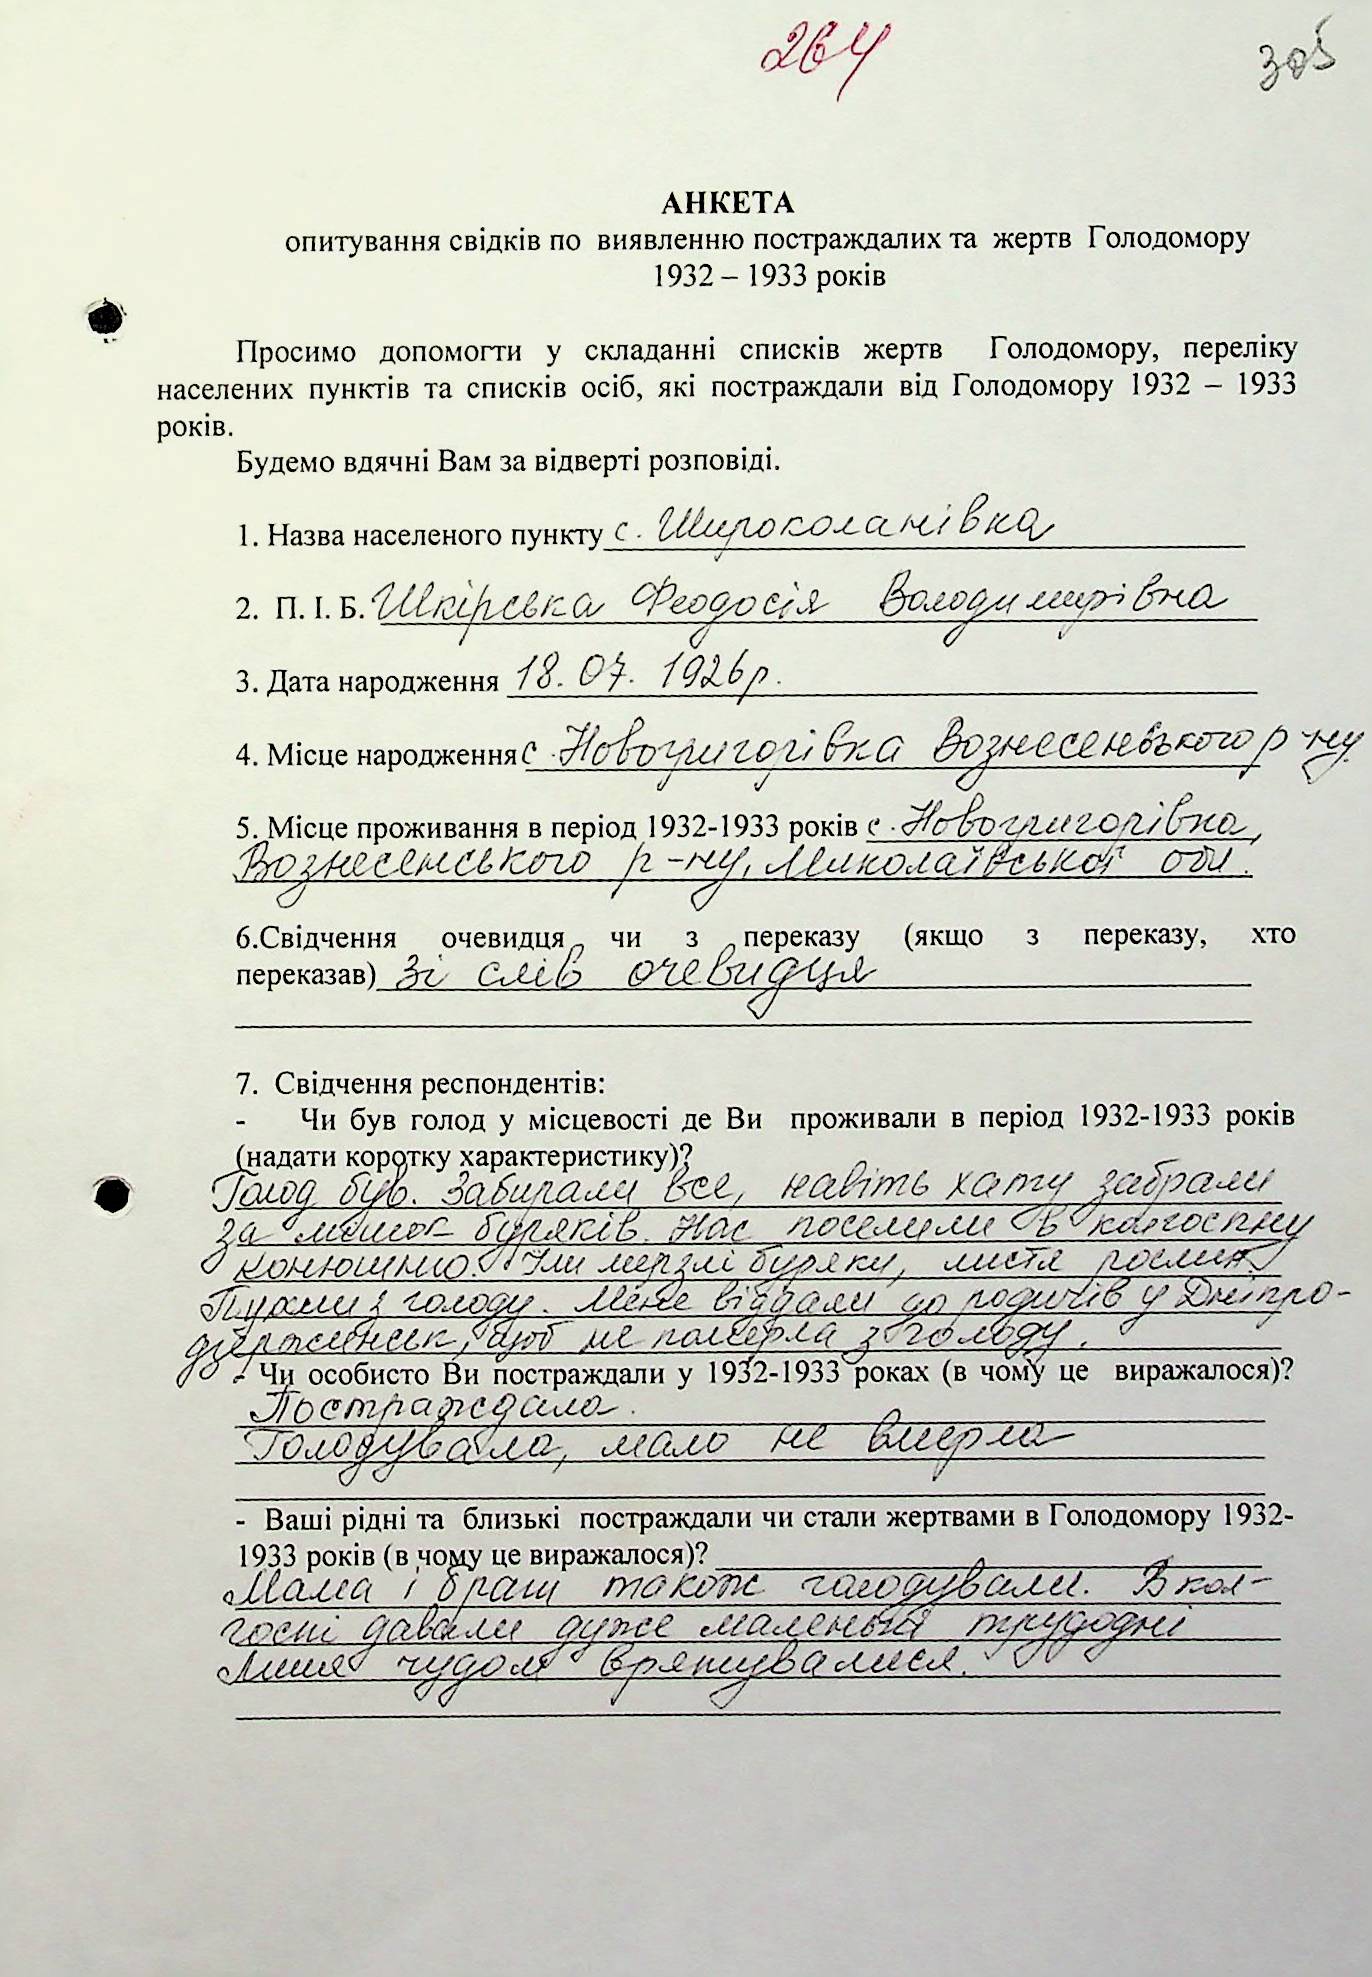 264
305
АНКЕТА
опитування свідків по виявленню постраждалих та жертв Голодомору
1932 – 1933 років
Просимо допомогти у складанні списків жертв Голодомору, переліку
населених пунктів та списків осіб, які постраждали від Голодомору 1932 – 1933
років.
Будемо вдячні Вам за відверті розповіді.
1. Назва населеного пункту с. Широколанівка
2. П. І. Б. Шкірська Феодосія Володимирівна
3. Дата народження 18.07.1926р.
4. Місце народження с. Новогригорівка Вознесенського р-ну
5. Місце проживання в період 1932-1933 років с. Новогригорівка,
Вознесенського р-ну, Миколаївської обл.
6.Свідчення очевидця чи з переказу (якщо з переказу, хто
переказав) Зі слів очевидця
7. Свідчення респондентів:
- Чи був голод у місцевості де Ви проживали в період 1932-1933 років
(надати коротку характеристику)?
Голод був. Забирали все, навіть хату забрали
за мішок буряків. Нас поселили в колгоспну
конюшню. Їли мерзлі буряки, листя рослин
Пухли з голоду. Мене віддали до родичів у Дніпро-
дзержинськ, щоб не померла з голоду.
- Чи особисто Ви постраждали у 1932-1933 роках (в чому це виражалося)?
Постраждала.
Голодувала, мало не вмерла
- Ваші рідні та близькі постраждали чи стали жертвами в Голодомору 1932-
1933 років (в чому це виражалося)?
Мама і брат також голодували. В кол-
госпі давали дуже маленькі трудодні
Лише чудом врятувалися.